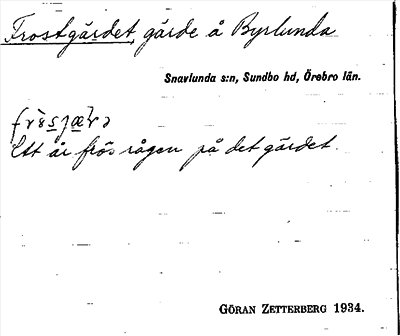 Frostgärdet, gärde å Byrlunda
Snavlunda s:n, Sundbo hd, Örebro län.
Ett år frös rågen på det gärdet.
GÖRAN ZETTERBERG 1934.